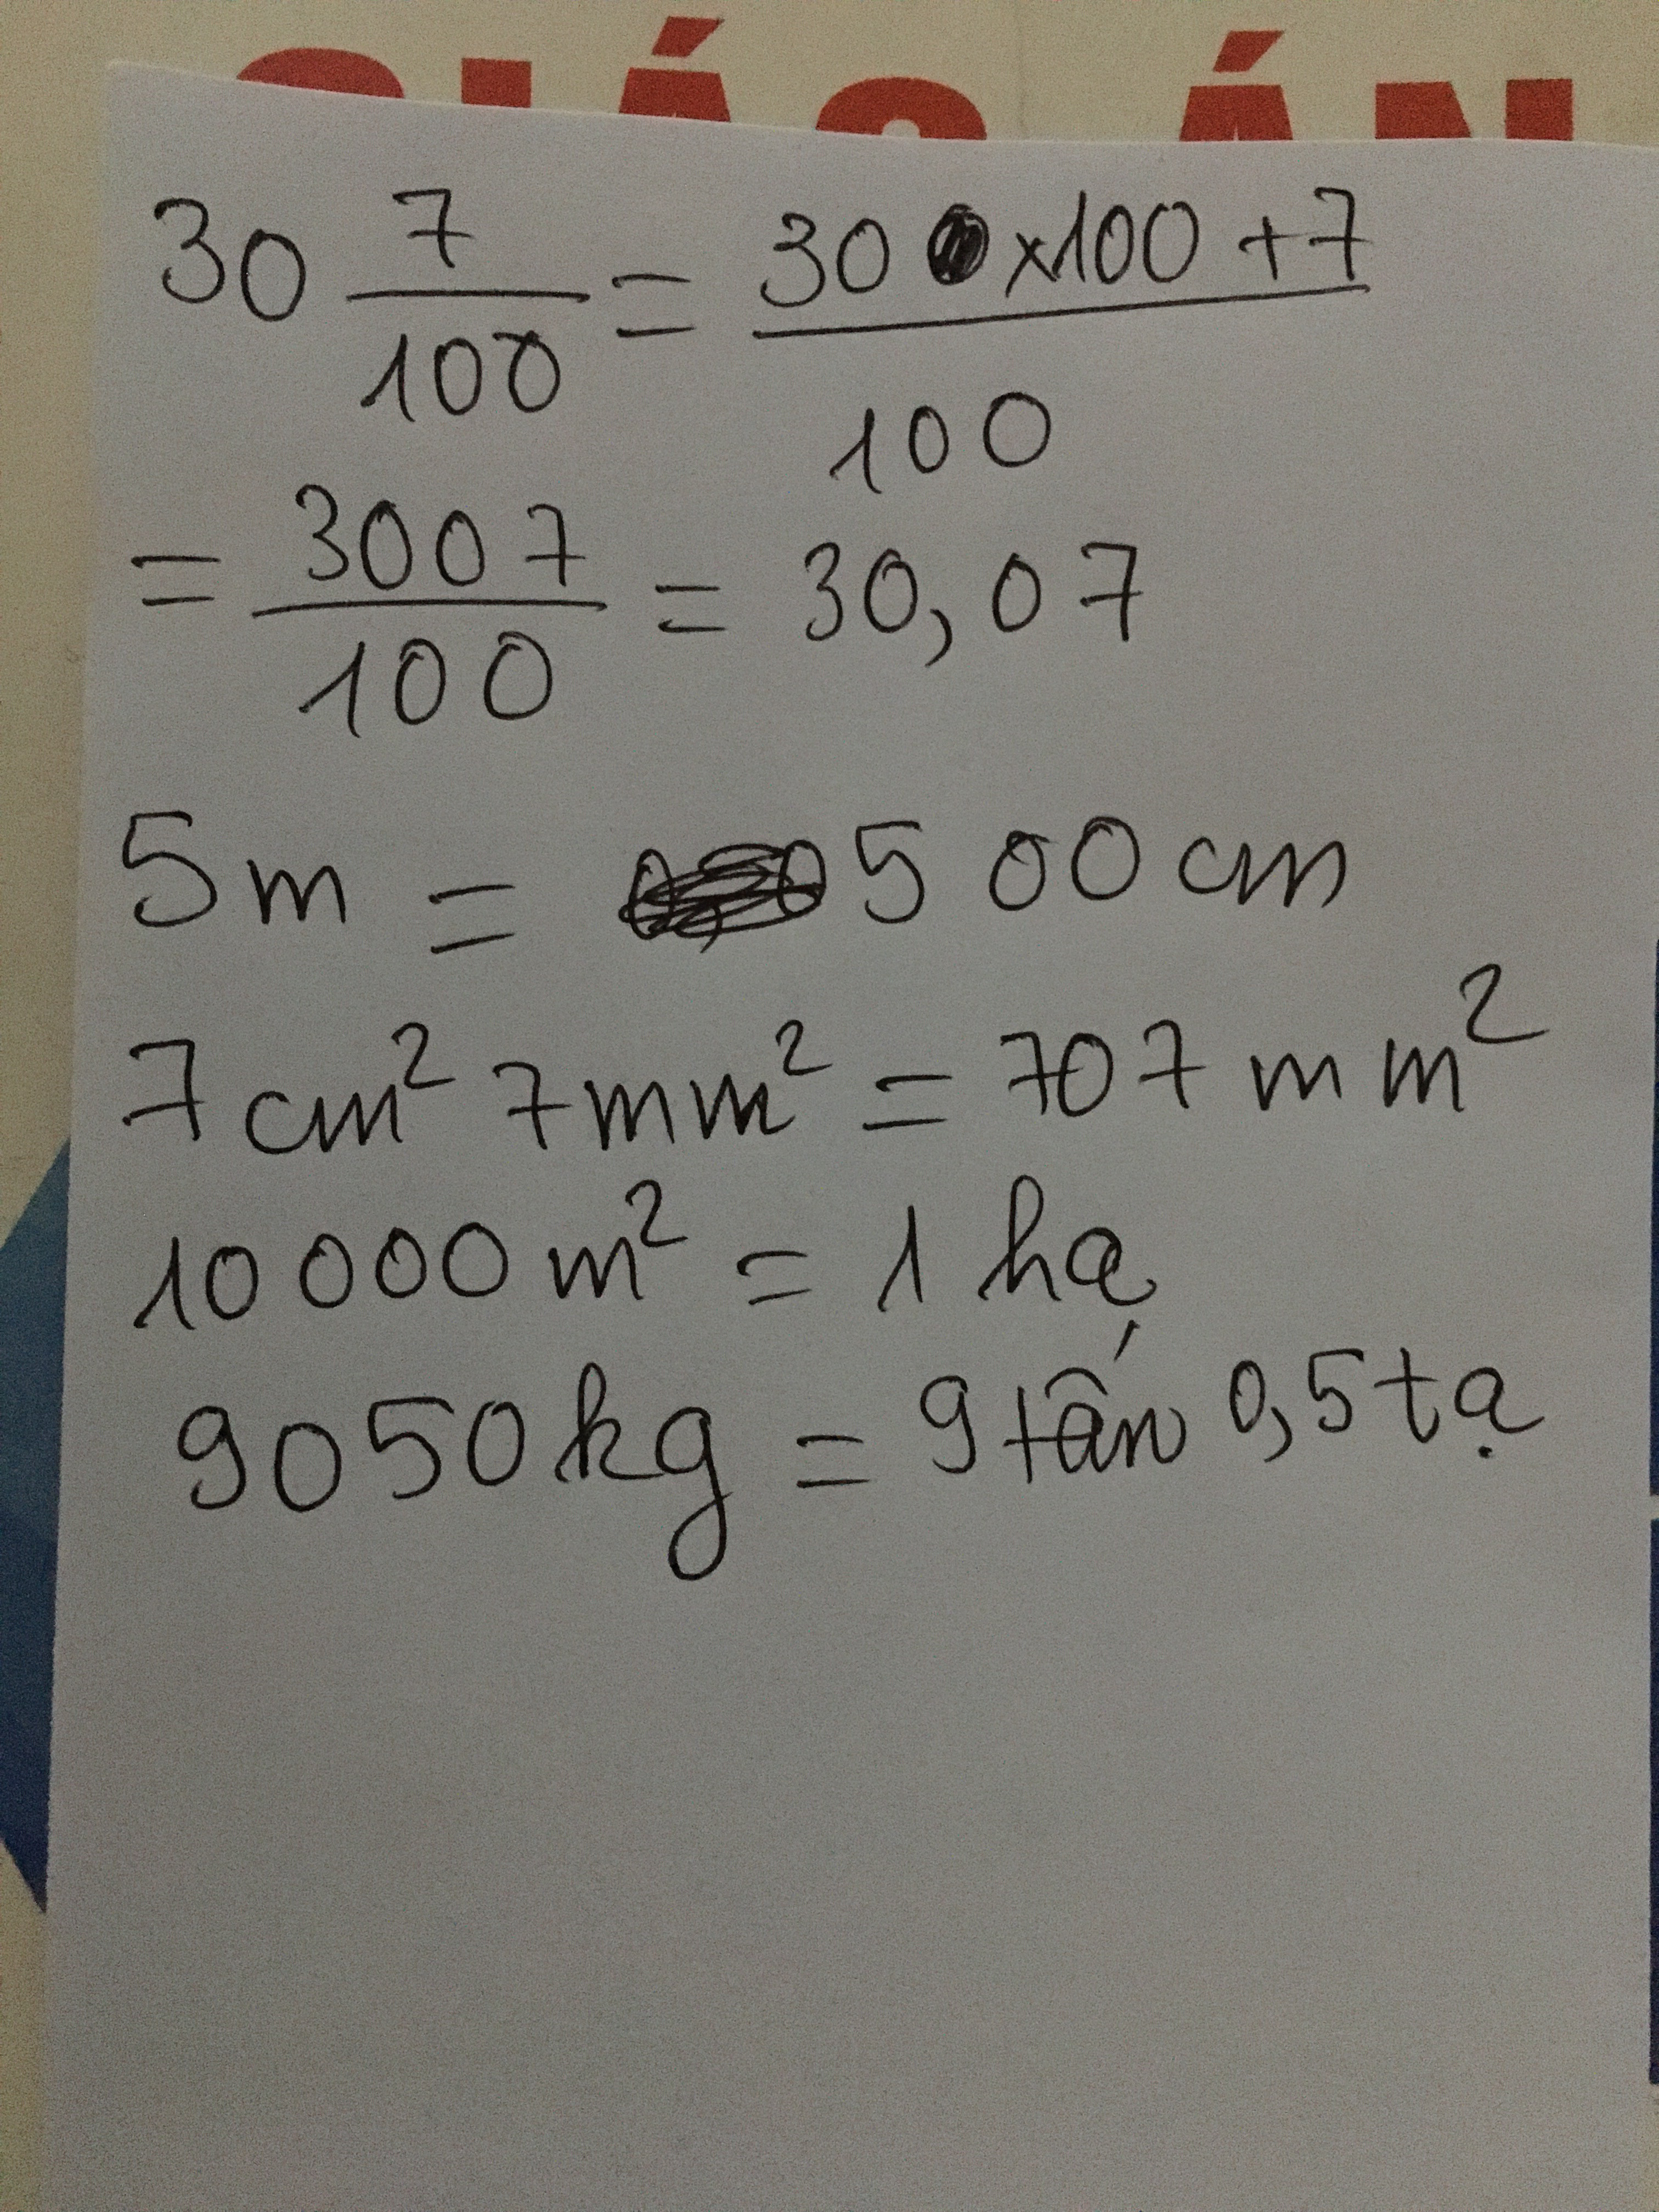 GIÁO ÁN
30 7/100 = 30 x 100 + 7 / 100
= 3007/100 = 30,07
5m = 500cm
7cm² 7mm² = 707mm²
10000m² = 1 ha
9050kg = 9 tấn 0,5 tạ